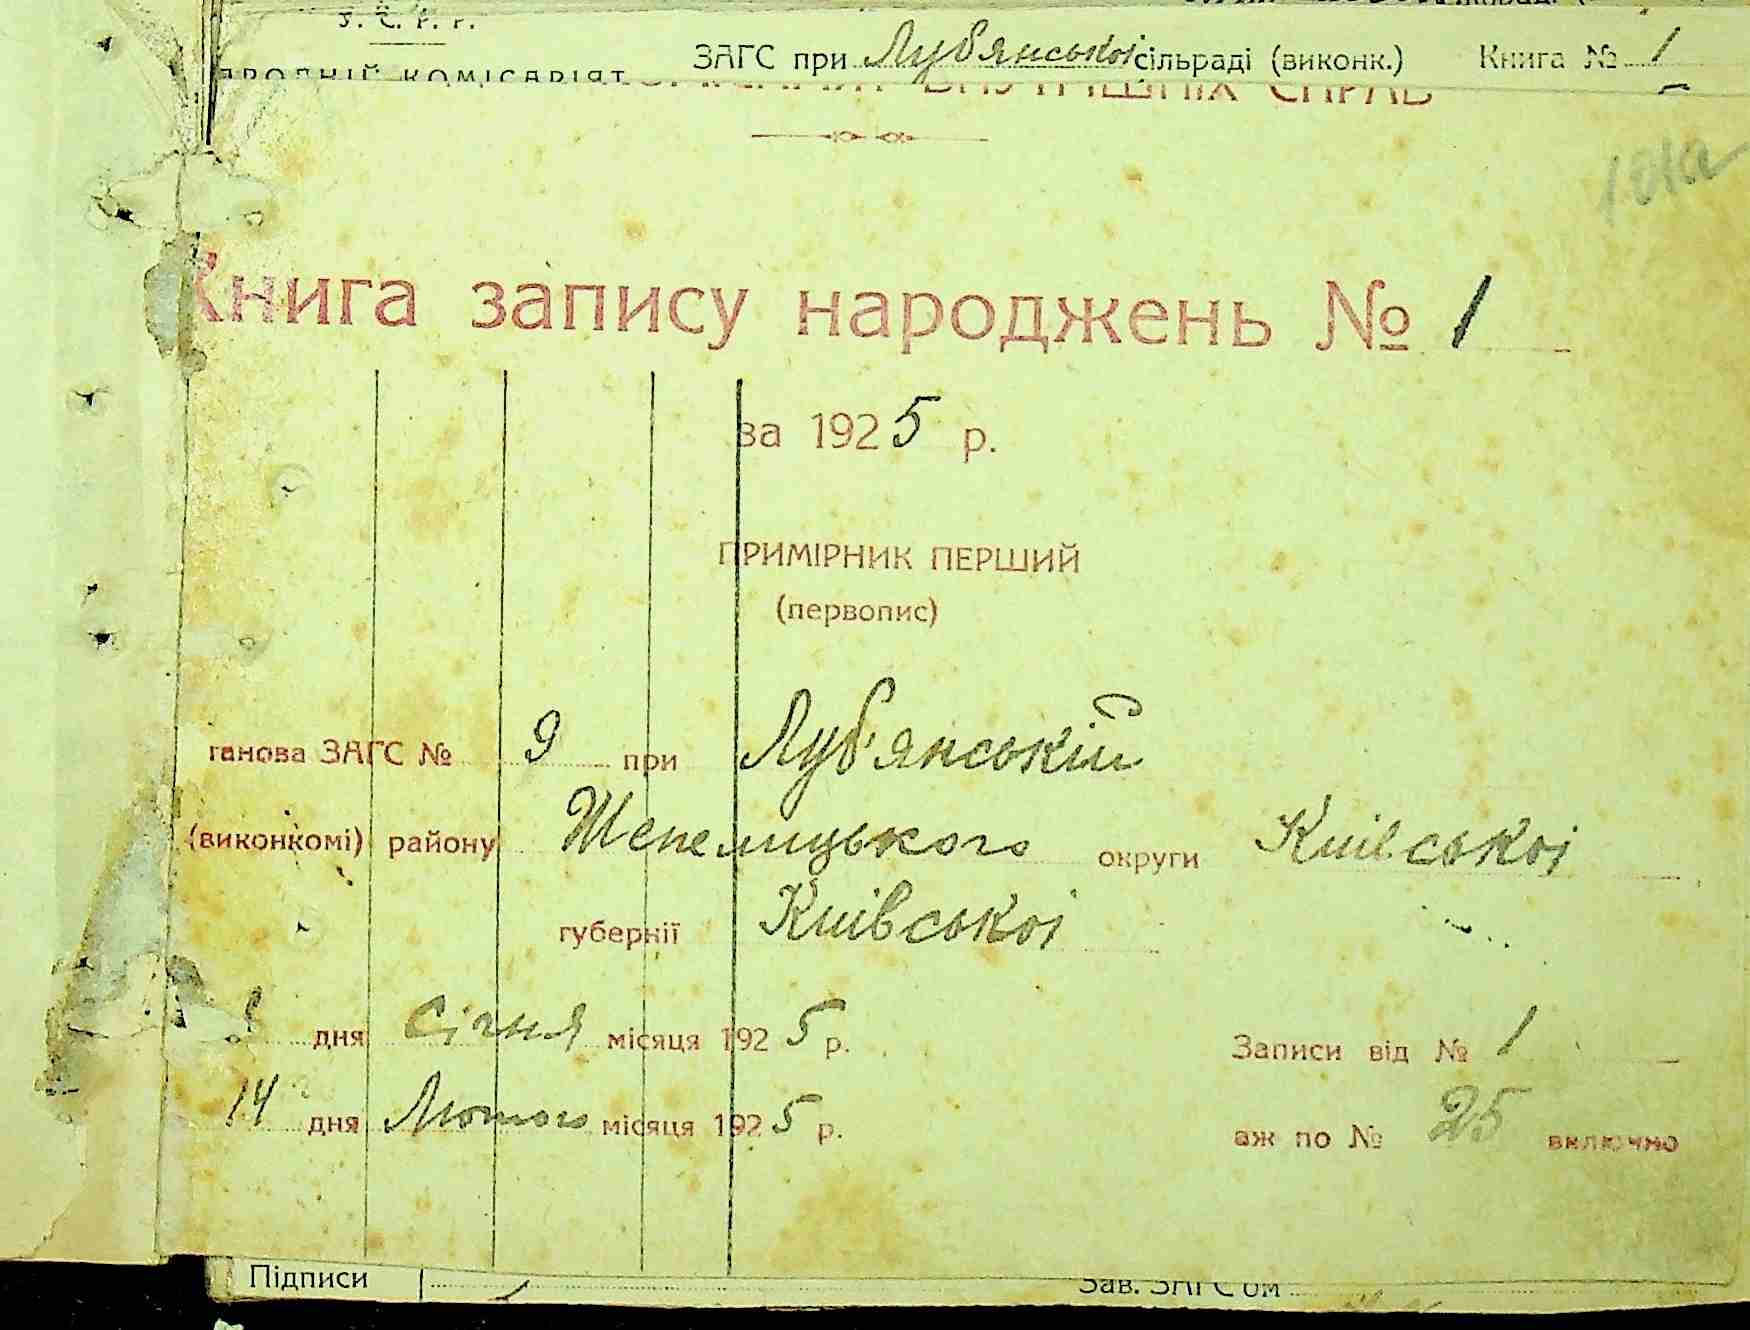 У. С. Р. Р.
ЗАГС при Луб'янської сільраді (виконк.) Книга № 1
НАРОДНІЙ КОМІСАРІЯТ ВНУТРІШНІХ СПРАВ
Книга запису народжень № 1
за 1925 р.
ПРИМІРНИК ПЕРШИЙ
(первопис)
ганова ЗАГС № 9 при Луб'янській
(виконкомі) району Шепелицького округи Київської
губернії Київської
дня Січня місяця 1925 р. Записи від № 1
14 дня Лютого місяця 1925 р. аж по № 25 включно
Підписи Зав. ЗАГС'ом